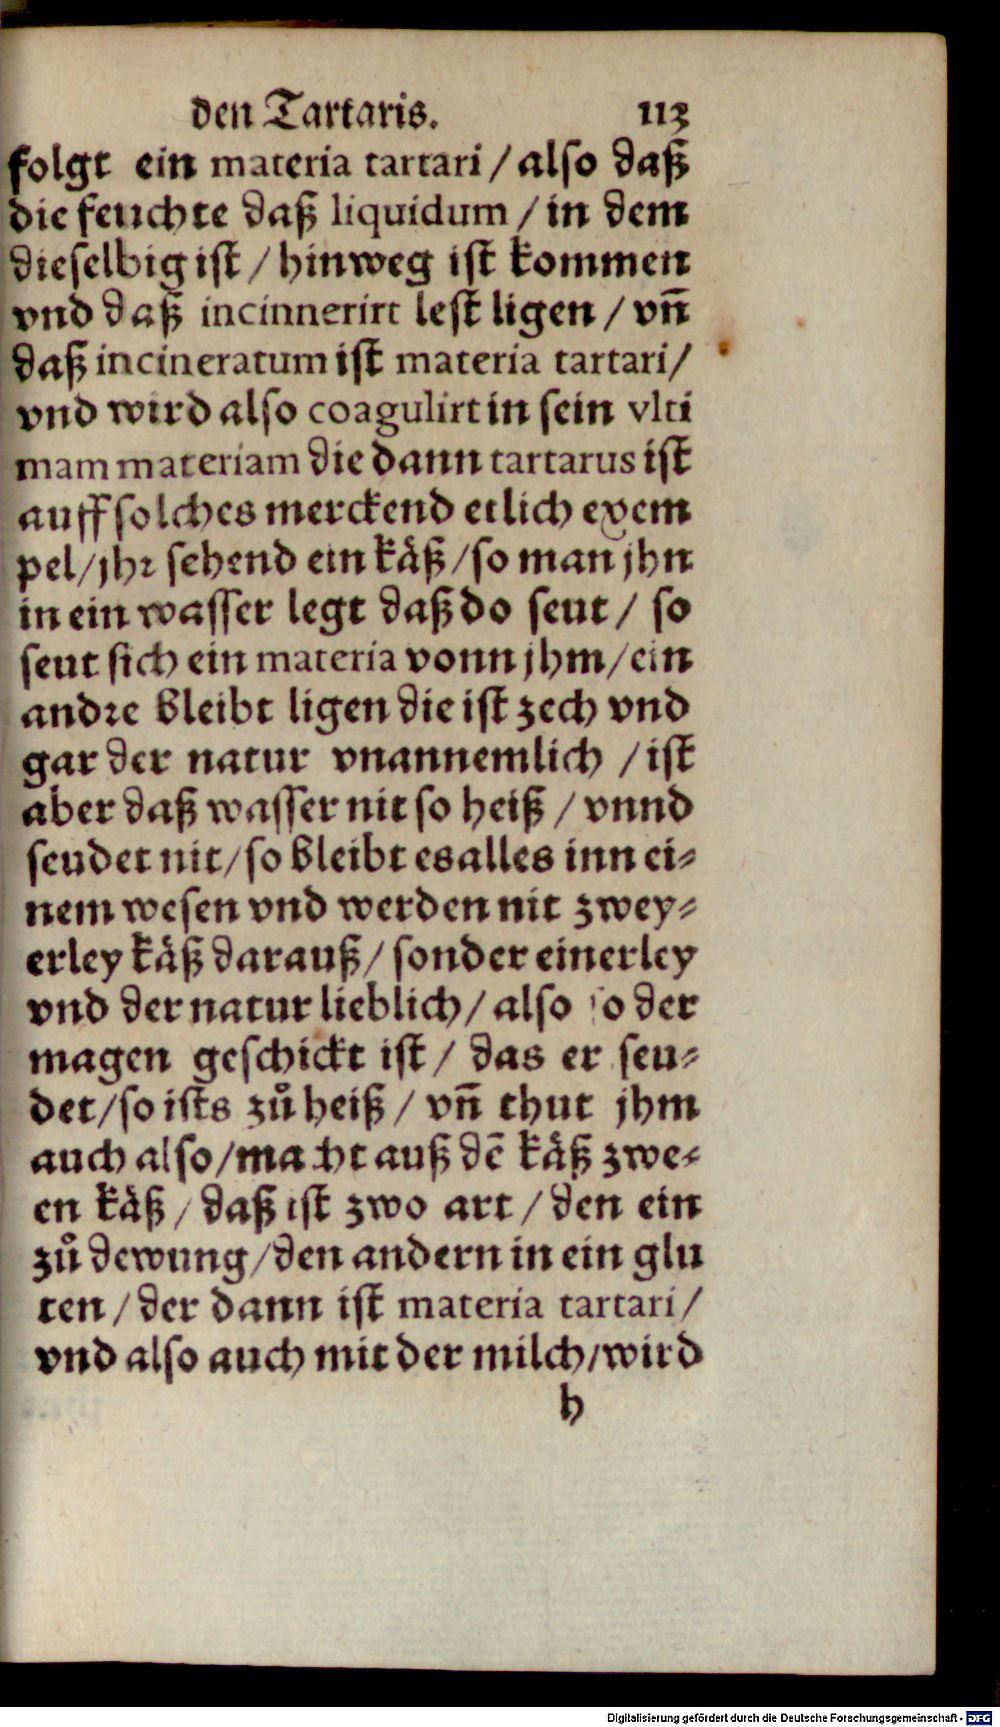 den Tartaris. 113
folgt ein materia tartari / also daß
die feuchte daß liquidum / in dem
dieselbig ist / hinweg ist kommen
vnd daß incinnerirt lest ligen / vñ
daß incineratum ist materia tartari /
vnd wird also coagulirt in sein vlti
mam materiam die dann tartarus ist
auff solches merckend etlich exem
pel / jhr sehend ein käß / so man jhn
in ein wasser legt daß do seut / so
seut sich ein materia vonn jhm / ein
andre bleibt ligen die ist zech vnd
gar der natur vnannemlich / ist
aber daß wasser nit so heiß / vnnd
seudet nit / so bleibt es alles inn ei⸗
nem wesen vnd werden nit zwey⸗
erley käß darauß / sonder einerley
vnd der natur lieblich / also so der
magen geschickt ist / das er seu⸗
det / so ists zů heiß / vñ thut jhm
auch also / macht auß dē käß zwe⸗
en käß / daß ist zwo art / den ein
zů dewung / den andern in ein glu
ten / der dann ist materia tartari /
vnd also auch mit der milch / wird
h
Digitalisierung gefördert durch die Deutsche Forschungsgemeinschaft - DFG